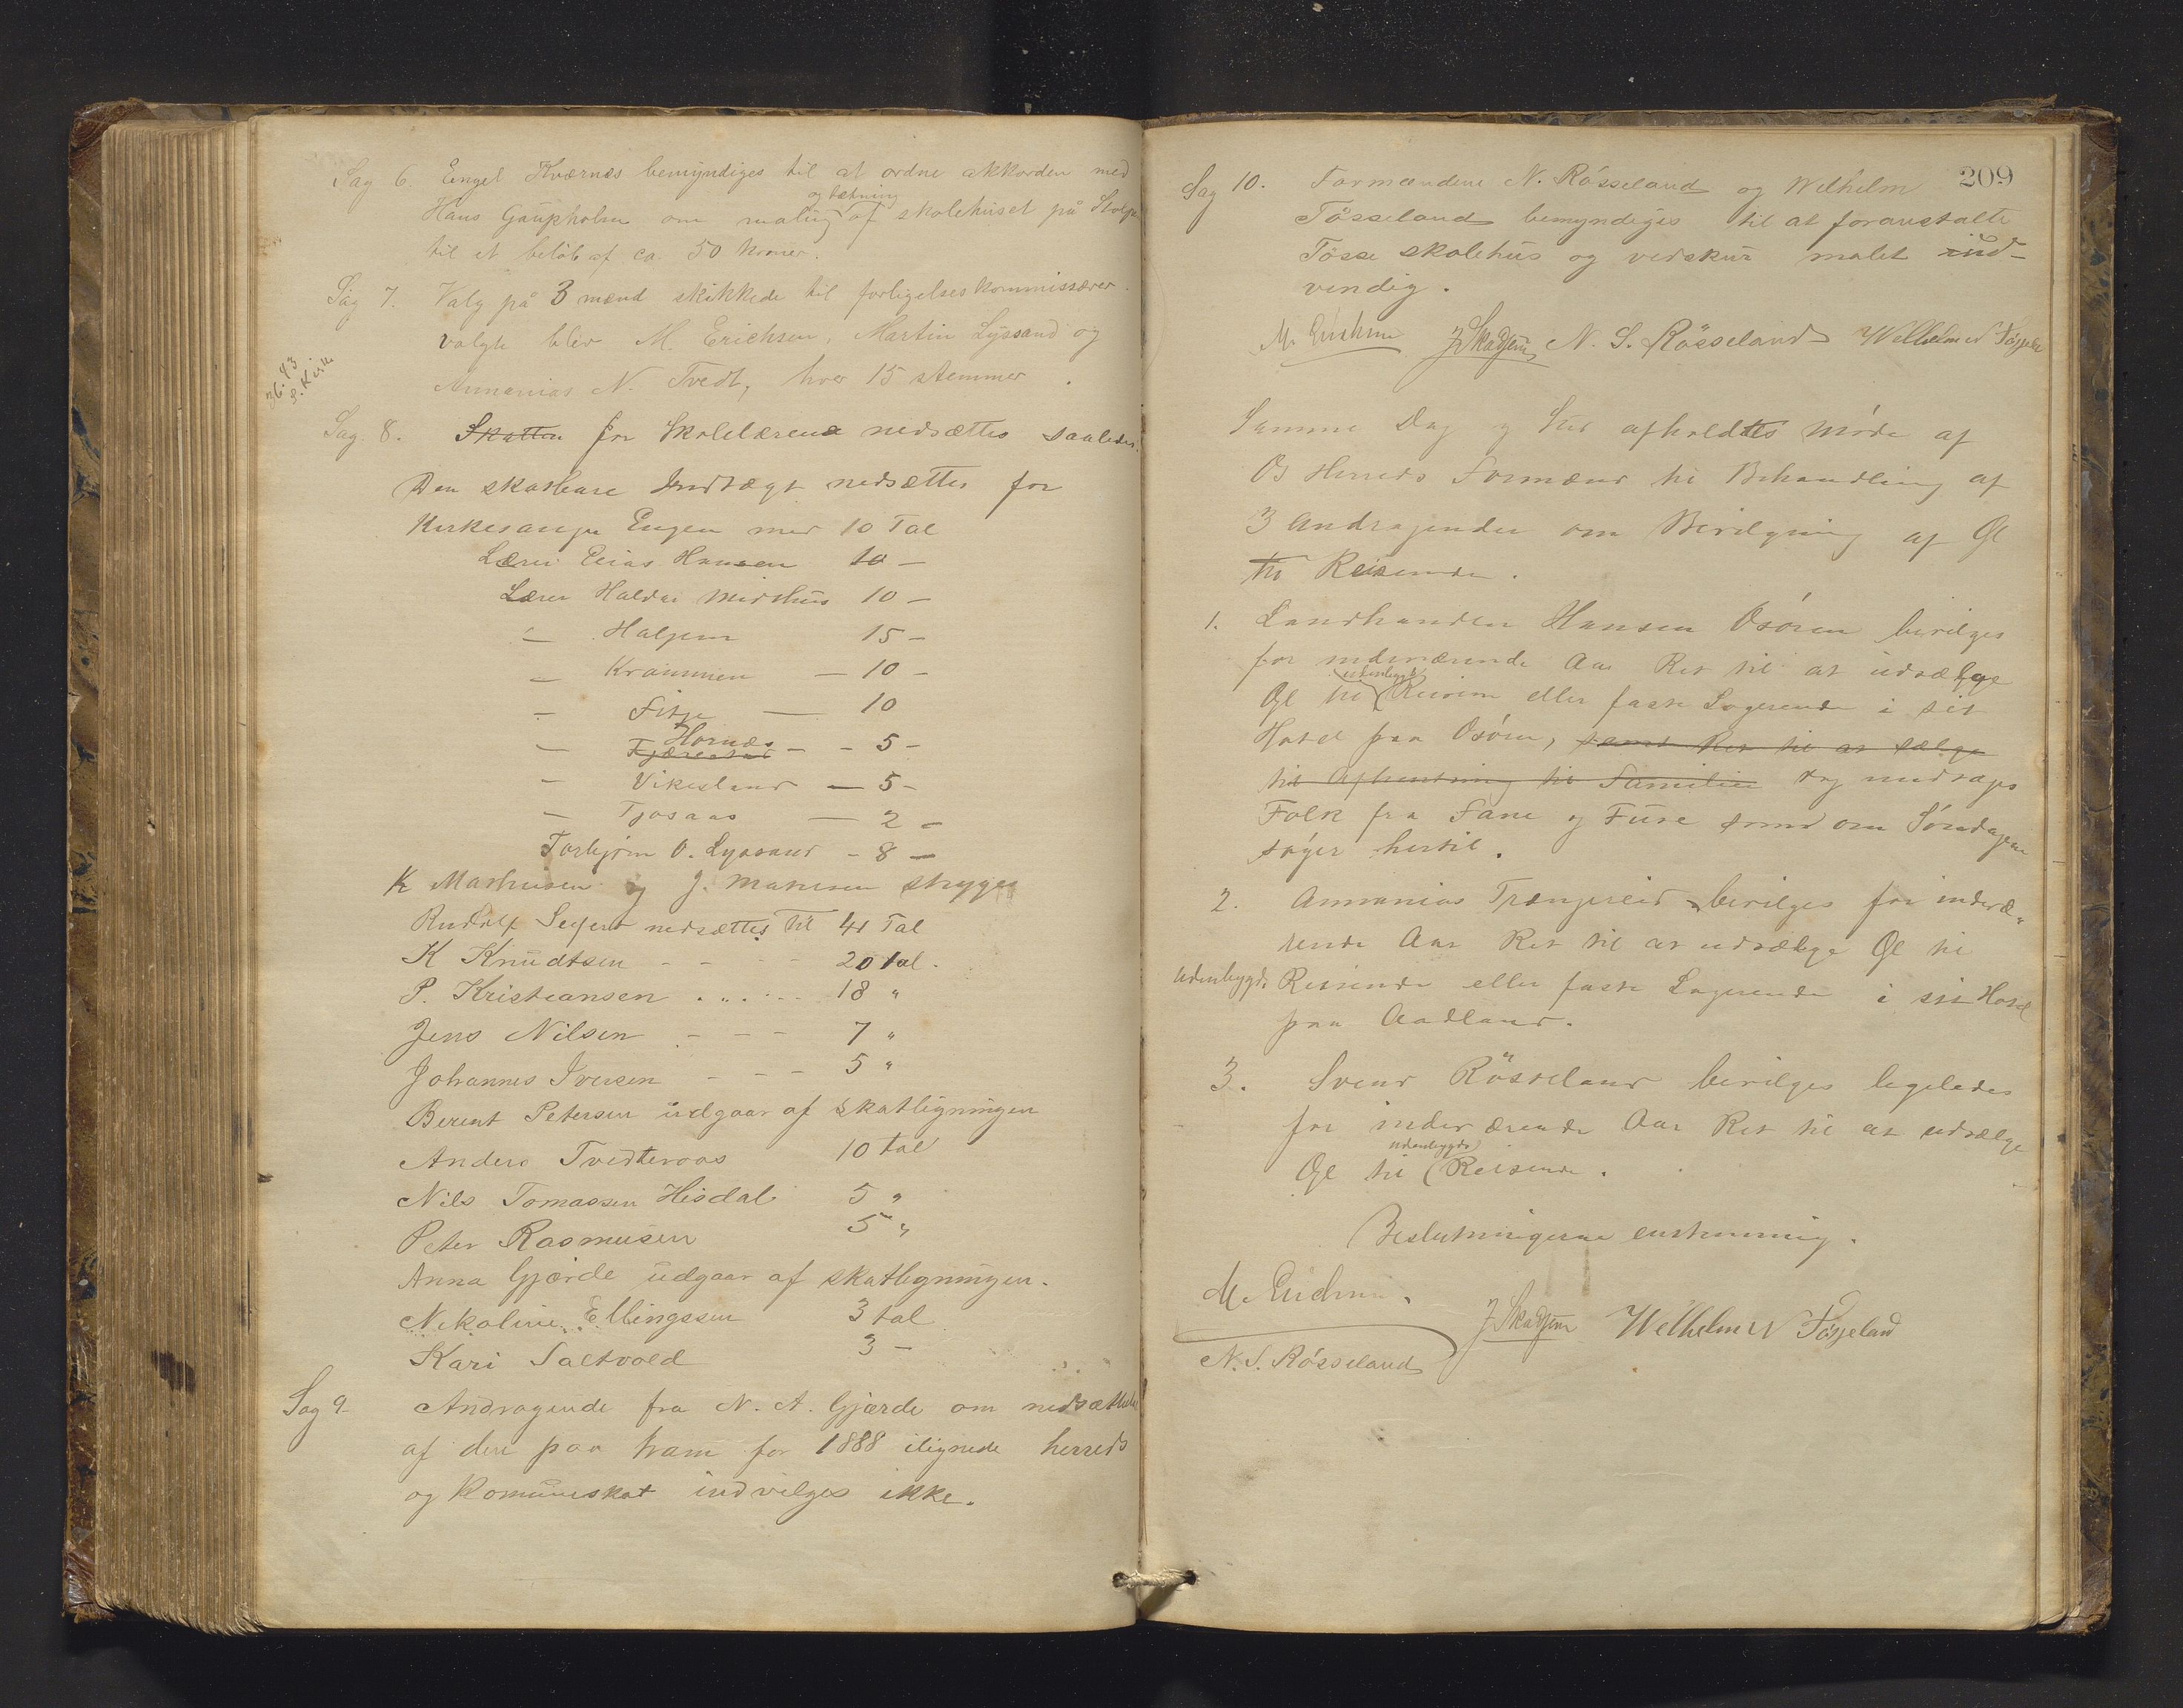 Sag 6. Engel Kværnes bemyndiges til at ordne akkorden med
og tætning
Hans Gaupholm om maling af skolehuset på
til et beløb af ca. 50 kroner.
Sag 7. Valg på 3 mænd skikkede til forligelseskommissærer.
valgte blev M. Erichsen, Martin Lyssand og
Annanias N. Tvedt, hver 15 stemmer.
Sag 8. Skatten for Skolelærerne nedsættes saaledes.
Den skatbare Indtægt nedsættes for
Kirkesanger Engen med 10 Tal
Lærer Elias Hansen 10 –
Lærer Haldor Midthus 10 –
– Haljem 15 –
– – 10 –
– Fitje – 10
Hornæs
– – – 5 –
– Vikesland – 5 –
– Tjosaas – 2 –
Torbjørn O. Lyssand – 8 –
K Mathiesen og J. stryges
Rudolf nedsættes til 41 Tal
K Knudtsen – – – 20 tal.
P. Kristiansen 18 "
Jens Nilsen – – – 7 "
Johannes Iversen – – – 5 "
Berent Petersen udgaar af skatligningen
Anders Tvedteraas 10 tal
Nils Tomassen Hisdal 5 "
Peter Rasmusen 5 "
Anna Gjærde udgaar af skatligningen.
Nikoline Ellingssen 3 tal
Kari Saltvold 3 –
Sag 9 Andragende fra N. A. Gjærde om nedsættelse
af den paa ham for 1888 ilignede herreds
og Komuneskat indvilges ikke.
209
Sag 10. Formændene N. Rösseland og Wilhelm
Tösseland bemyndiges til at foranstalte
Tösse skolehus og vedskur malet ind-
vendig.
M. Erichsen J Skadsem N. S. Rösseland Wilhelm N Tøsseland
Samme Dag og Sted afholdtes Møde af
Os Herreds Formænd til Behandling af
3 Andragender om Bevilgning af Øl
til Reisende.
1. Landhandler Hansen Osøren bevilges
for indeværende Aar Ret til at udsælge
udenbygds
Øl til Reisende eller faste Logerende i sit
Hotel paa Osøren, samt Ret til at sælge
til Afhentning til Familier dog undtages
Folk fra Fane og Fuse som om Søndagene
søger hertil.
2. Annanias Trængereid bevilges for indevæ-
rende Aar Ret til at udsælge Øl til
udenbygds Reisende eller faste Logerende i sit Hotel
paa Aadland.
3. Svend Rösseland bevilges ligeledes
for indeværende Aar Ret til at udsælge
udenbygds
Øl til Reisende.
Beslutningerne enstemmig.
M. Erichsen.
J Skadsem Wilhelm N Tøsseland
N. S. Rösseland